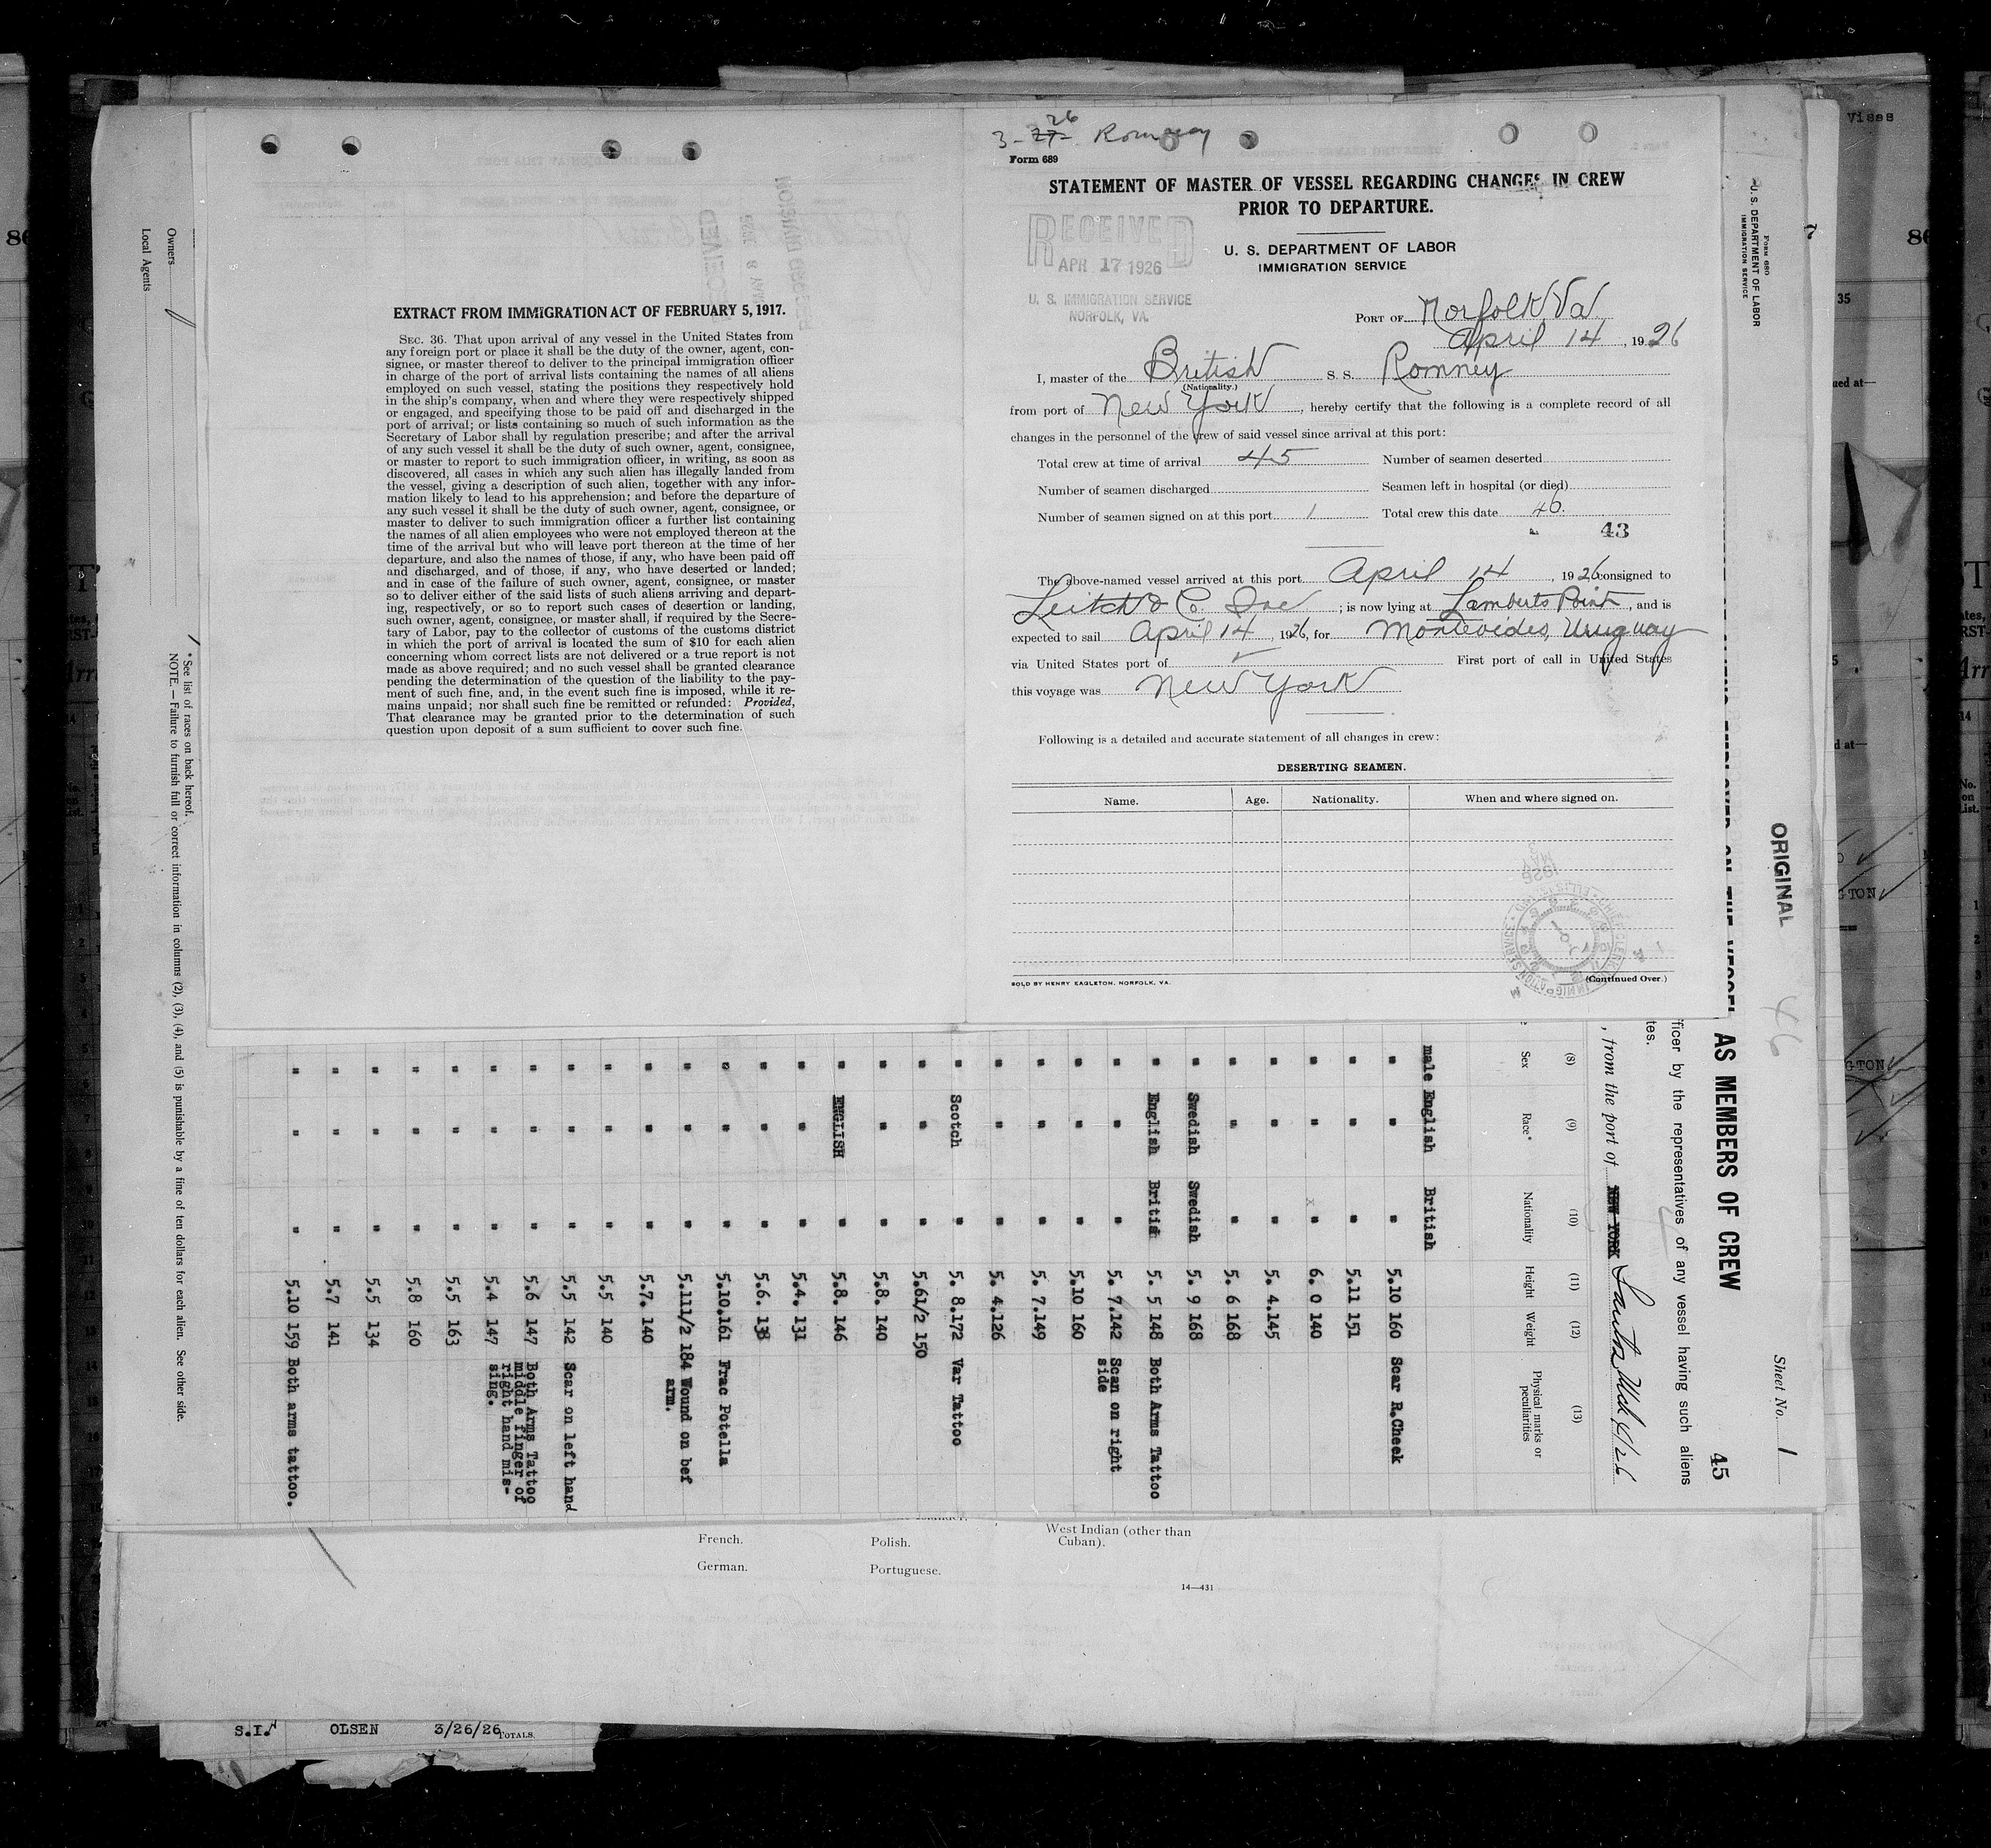 3-27- 26 Romney
Form 689
STATEMENT OF MASTER OF VESSEL REGARDING CHANGES IN CREW
PRIOR TO DEPARTURE.
U. S. DEPARTMENT OF LABOR
IMMIGRATION SERVICE
RECEIVED
APR 17 1926
U. S. IMMIGRATION SERVICE
NORFOLK, VA.
PORT OF Norfolk, Va.
April 14, 1926
I, master of the British S. S. Romney
(Nationality.)
from port of New York, hereby certify that the following is a complete record of all
changes in the personnel of the crew of said vessel since arrival at this port:
Total crew at time of arrival 45 Number of seamen deserted
Number of seamen discharged Seamen left in hospital (or died)
Number of seamen signed on at this port 1 Total crew this date 46.
43
The above-named vessel arrived at this port April 14, 1926 consigned to
Leitch & Co. Inc; is now lying at Lamberts Point, and is
expected to sail April 14, 1926, for Montevideo, Uruguay
via United States port of First port of call in United States
this voyage was New York
Following is a detailed and accurate statement of all changes in crew:
DESERTING SEAMEN.
Name. Age. Nationality. When and where signed on.
SOLD BY HENRY EAGLETON, NORFOLK, VA.
(Continued Over.)
EXTRACT FROM IMMIGRATION ACT OF FEBRUARY 5, 1917.
SEC. 36. That upon arrival of any vessel in the United States from
any foreign port or place it shall be the duty of the owner, agent, con-
signee, or master thereof to deliver to the principal immigration officer
in charge of the port of arrival lists containing the names of all aliens
employed on such vessel, stating the positions they respectively hold
in the ship's company, when and where they were respectively shipped
or engaged, and specifying those to be paid off and discharged in the
port of arrival; or lists containing so much of such information as the
Secretary of Labor shall by regulation prescribe; and after the arrival
of any such vessel it shall be the duty of such owner, agent, consignee,
or master to report to such immigration officer, in writing, as soon as
discovered, all cases in which any such alien has illegally landed from
the vessel, giving a description of such alien, together with any infor-
mation likely to lead to his apprehension; and before the departure of
any such vessel it shall be the duty of such owner, agent, consignee, or
master to deliver to such immigration officer a further list containing
the names of all alien employees who were not employed thereon at the
time of the arrival but who will leave port thereon at the time of her
departure, and also the names of those, if any, who have been paid off
and discharged, and of those, if any, who have deserted or landed;
and in case of the failure of such owner, agent, consignee, or master
so to deliver either of the said lists of such aliens arriving and depart-
ing, respectively, or so to report such cases of desertion or landing,
such owner, agent, consignee, or master shall, if required by the Secre-
tary of Labor, pay to the collector of customs of the customs district
in which the port of arrival is located the sum of $10 for each alien
concerning whom correct lists are not delivered or a true report is not
made as above required; and no such vessel shall be granted clearance
pending the determination of the question of the liability to the pay-
ment of such fine, and, in the event such fine is imposed, while it re-
mains unpaid; nor shall such fine be remitted or refunded: Provided,
That clearance may be granted prior to the determination of such
question upon deposit of a sum sufficient to cover such fine.
Form 680
U. S. DEPARTMENT OF LABOR
IMMIGRATION SERVICE
ORIGINAL
46
Sheet No. 1
45
AS MEMBERS OF CREW
officer by the representatives of any vessel having such aliens
, from the port of NEW YORK
(8) (9) (10) (11) (12) (13)
Sex Race* Nationality Height Weight Physical marks or
peculiarities
male English British
" " " 5.10 160 Scar R.Cheek
" " " 5.11 151
" " " 6. 0 140
" " " 5. 4.145
" " " 5. 6 168
" Swedish Swedish 5. 9 168
" English Britis 5. 5 148 Both Arms Tattoo
" " " 5. 7.142 Scan on right
side
" " " 5.10 160
" " " 5. 7.149
" " " 5. 4.126
" Scotch " 5. 8.172 Var Tattoo
" " " 5.61/2 150
" " " 5.8. 140
" ENGLISH " 5.8. 146
" " " 5.4. 131
" " " 5.6. 138
" " " 5.10.161 Frac Potella
" " " 5.111/2 184 Wound on bef
arm.
" " " 5.7. 140
" " " 5.5 140
" " " 5.5 142 Scar on left hand
" " " 5.6 147 Both Arms Tattoo
middle finger of
right hand mis-
sing.
" " " 5.4 147
" " " 5.5 163
" " " 5.8 160
" " " 5.5 134
" " " 5.7 141
" " " 5.10 159 Both arms tattoo.
* See list of races on back hereof.
NOTE.—Failure to furnish full or correct information in columns (2), (3), (4), and (5) is punishable by a fine of ten dollars for each alien. See other side.
Owners
Local Agents
French. Polish. West Indian (other than
Cuban).
German. Portuguese.
14—431
S.I. OLSEN 3/26/26 TOTALS
Visas